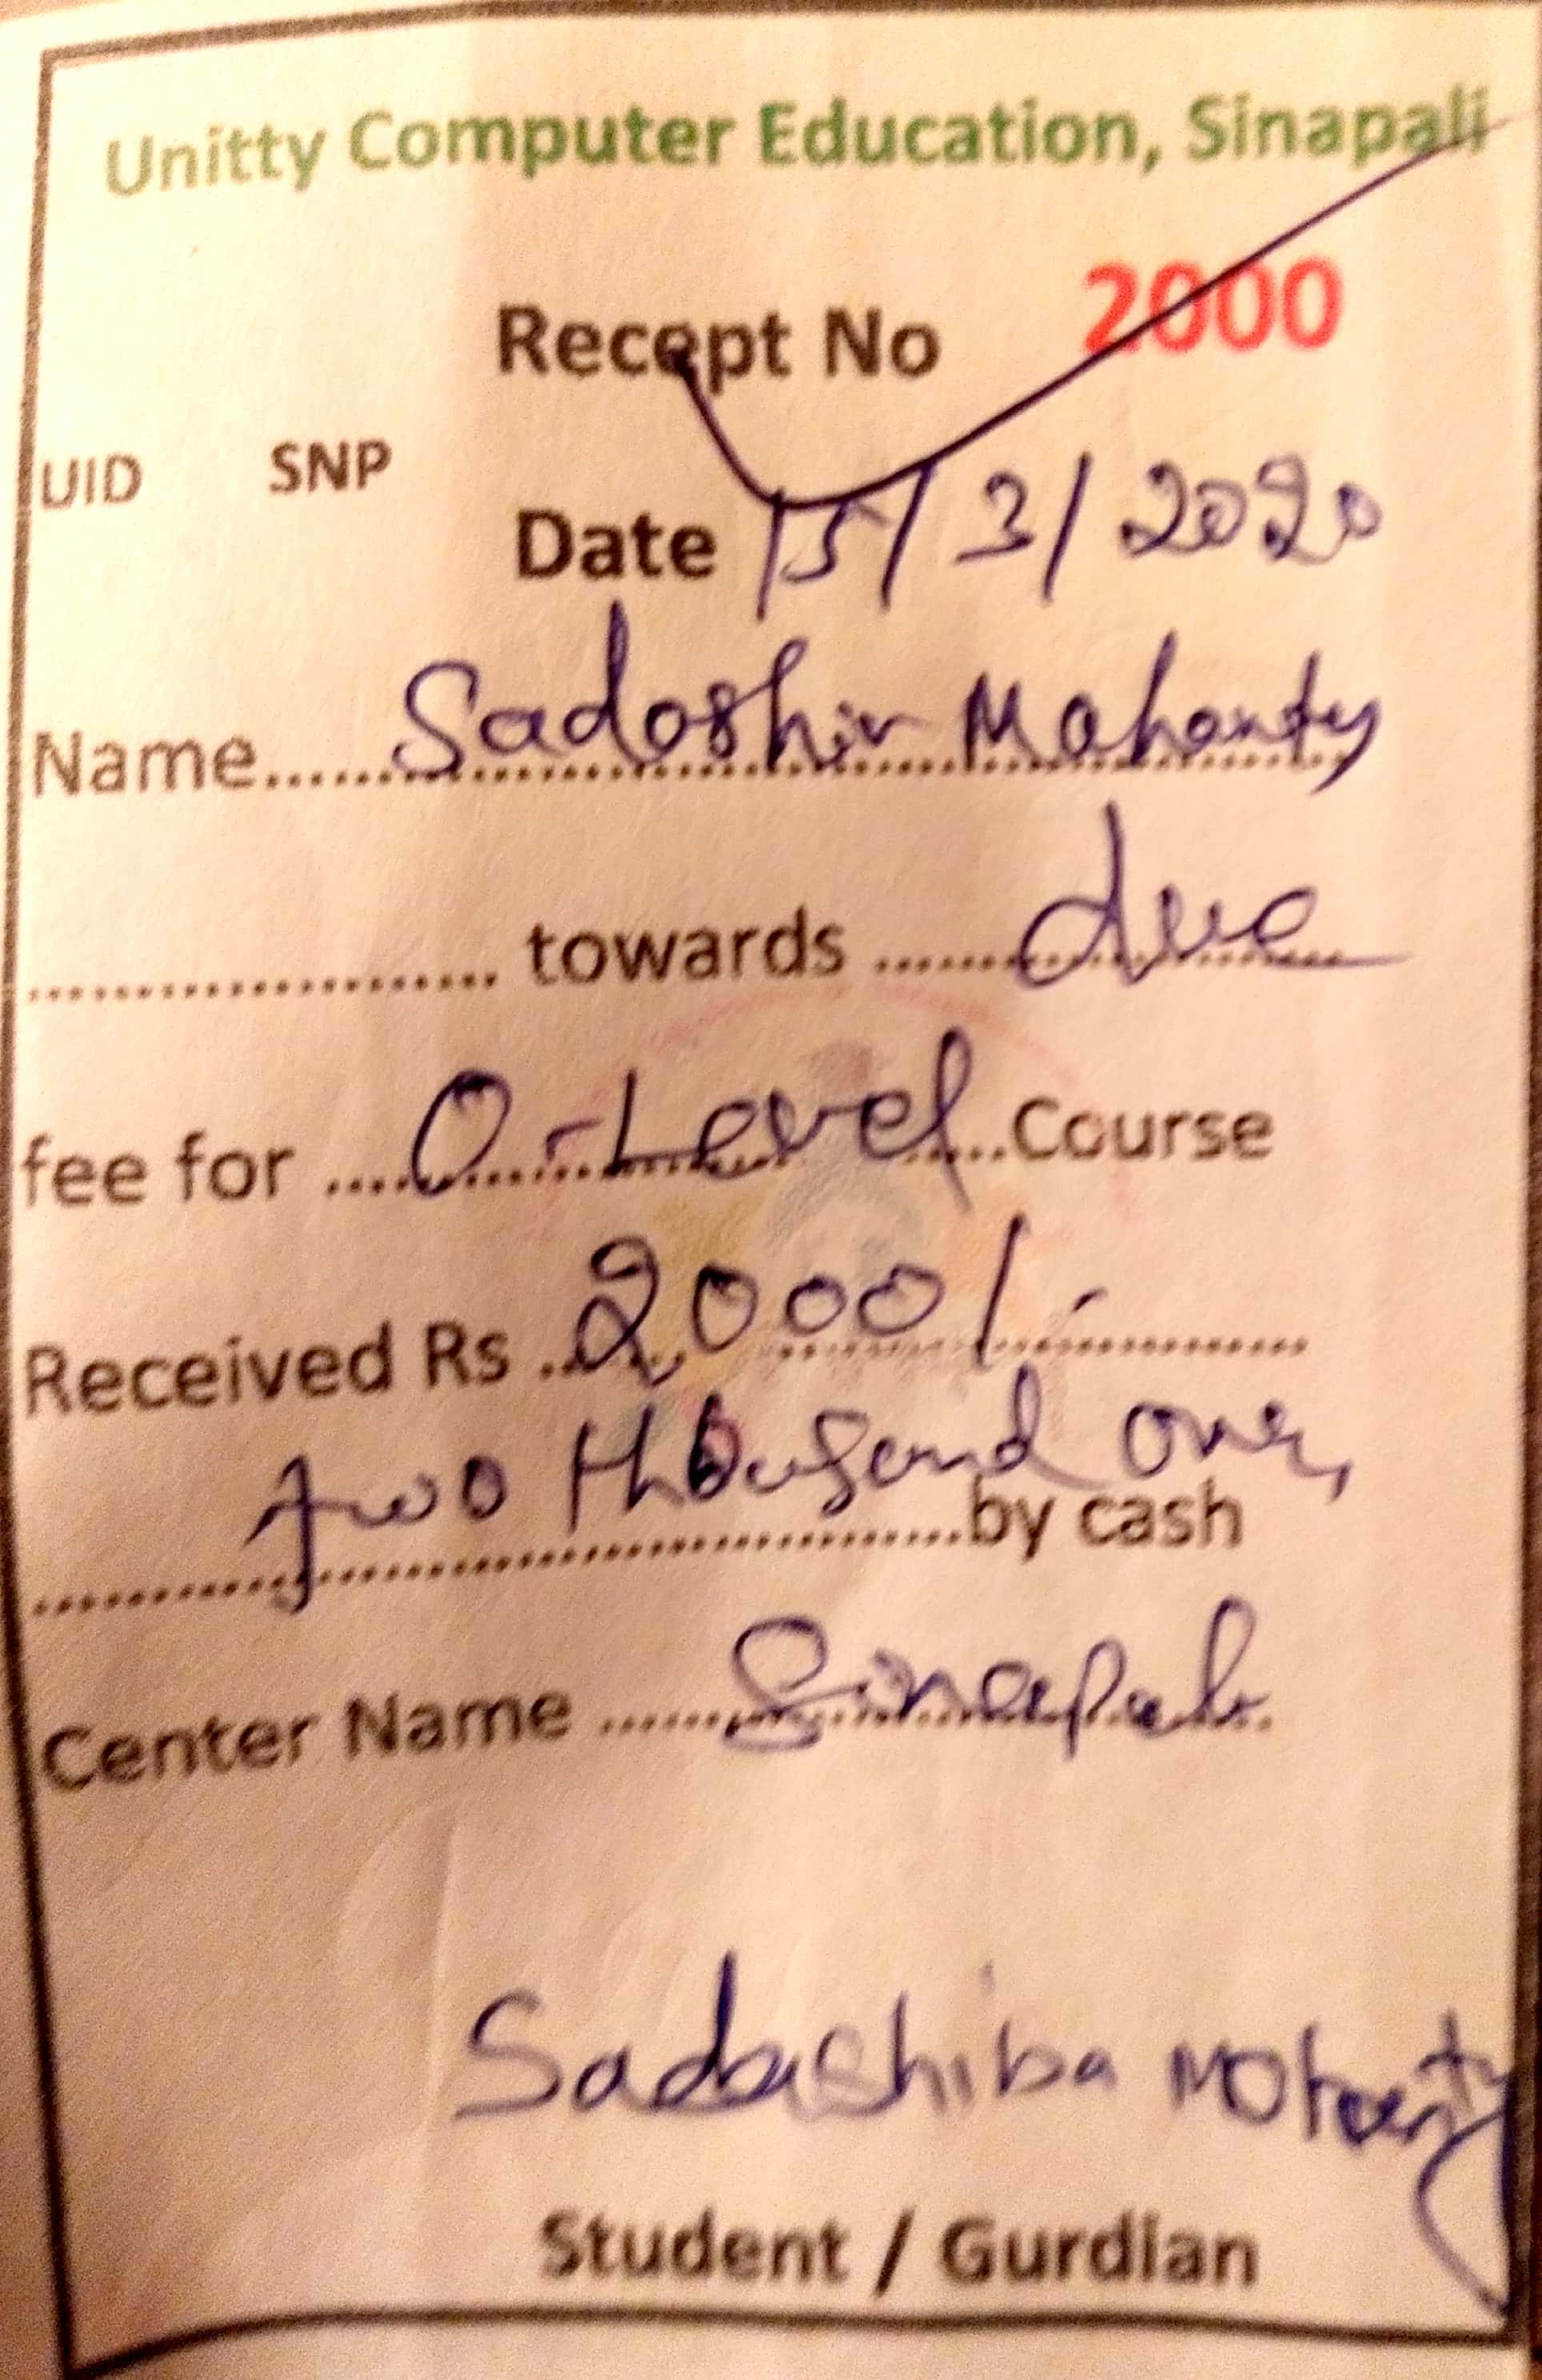 Unitty Computer Education, Sinapali
Recept No 2000
UID SNP
Date 15/3/2020
Name......Sadoshiv Mahanty
.................... towards ......due
fee for ....O-Level....Course
Received Rs ...2000/-............
two thousand only
........................................by cash
Center Name ......Sinapali
Sadashiba Mohanty
Student / Gurdian